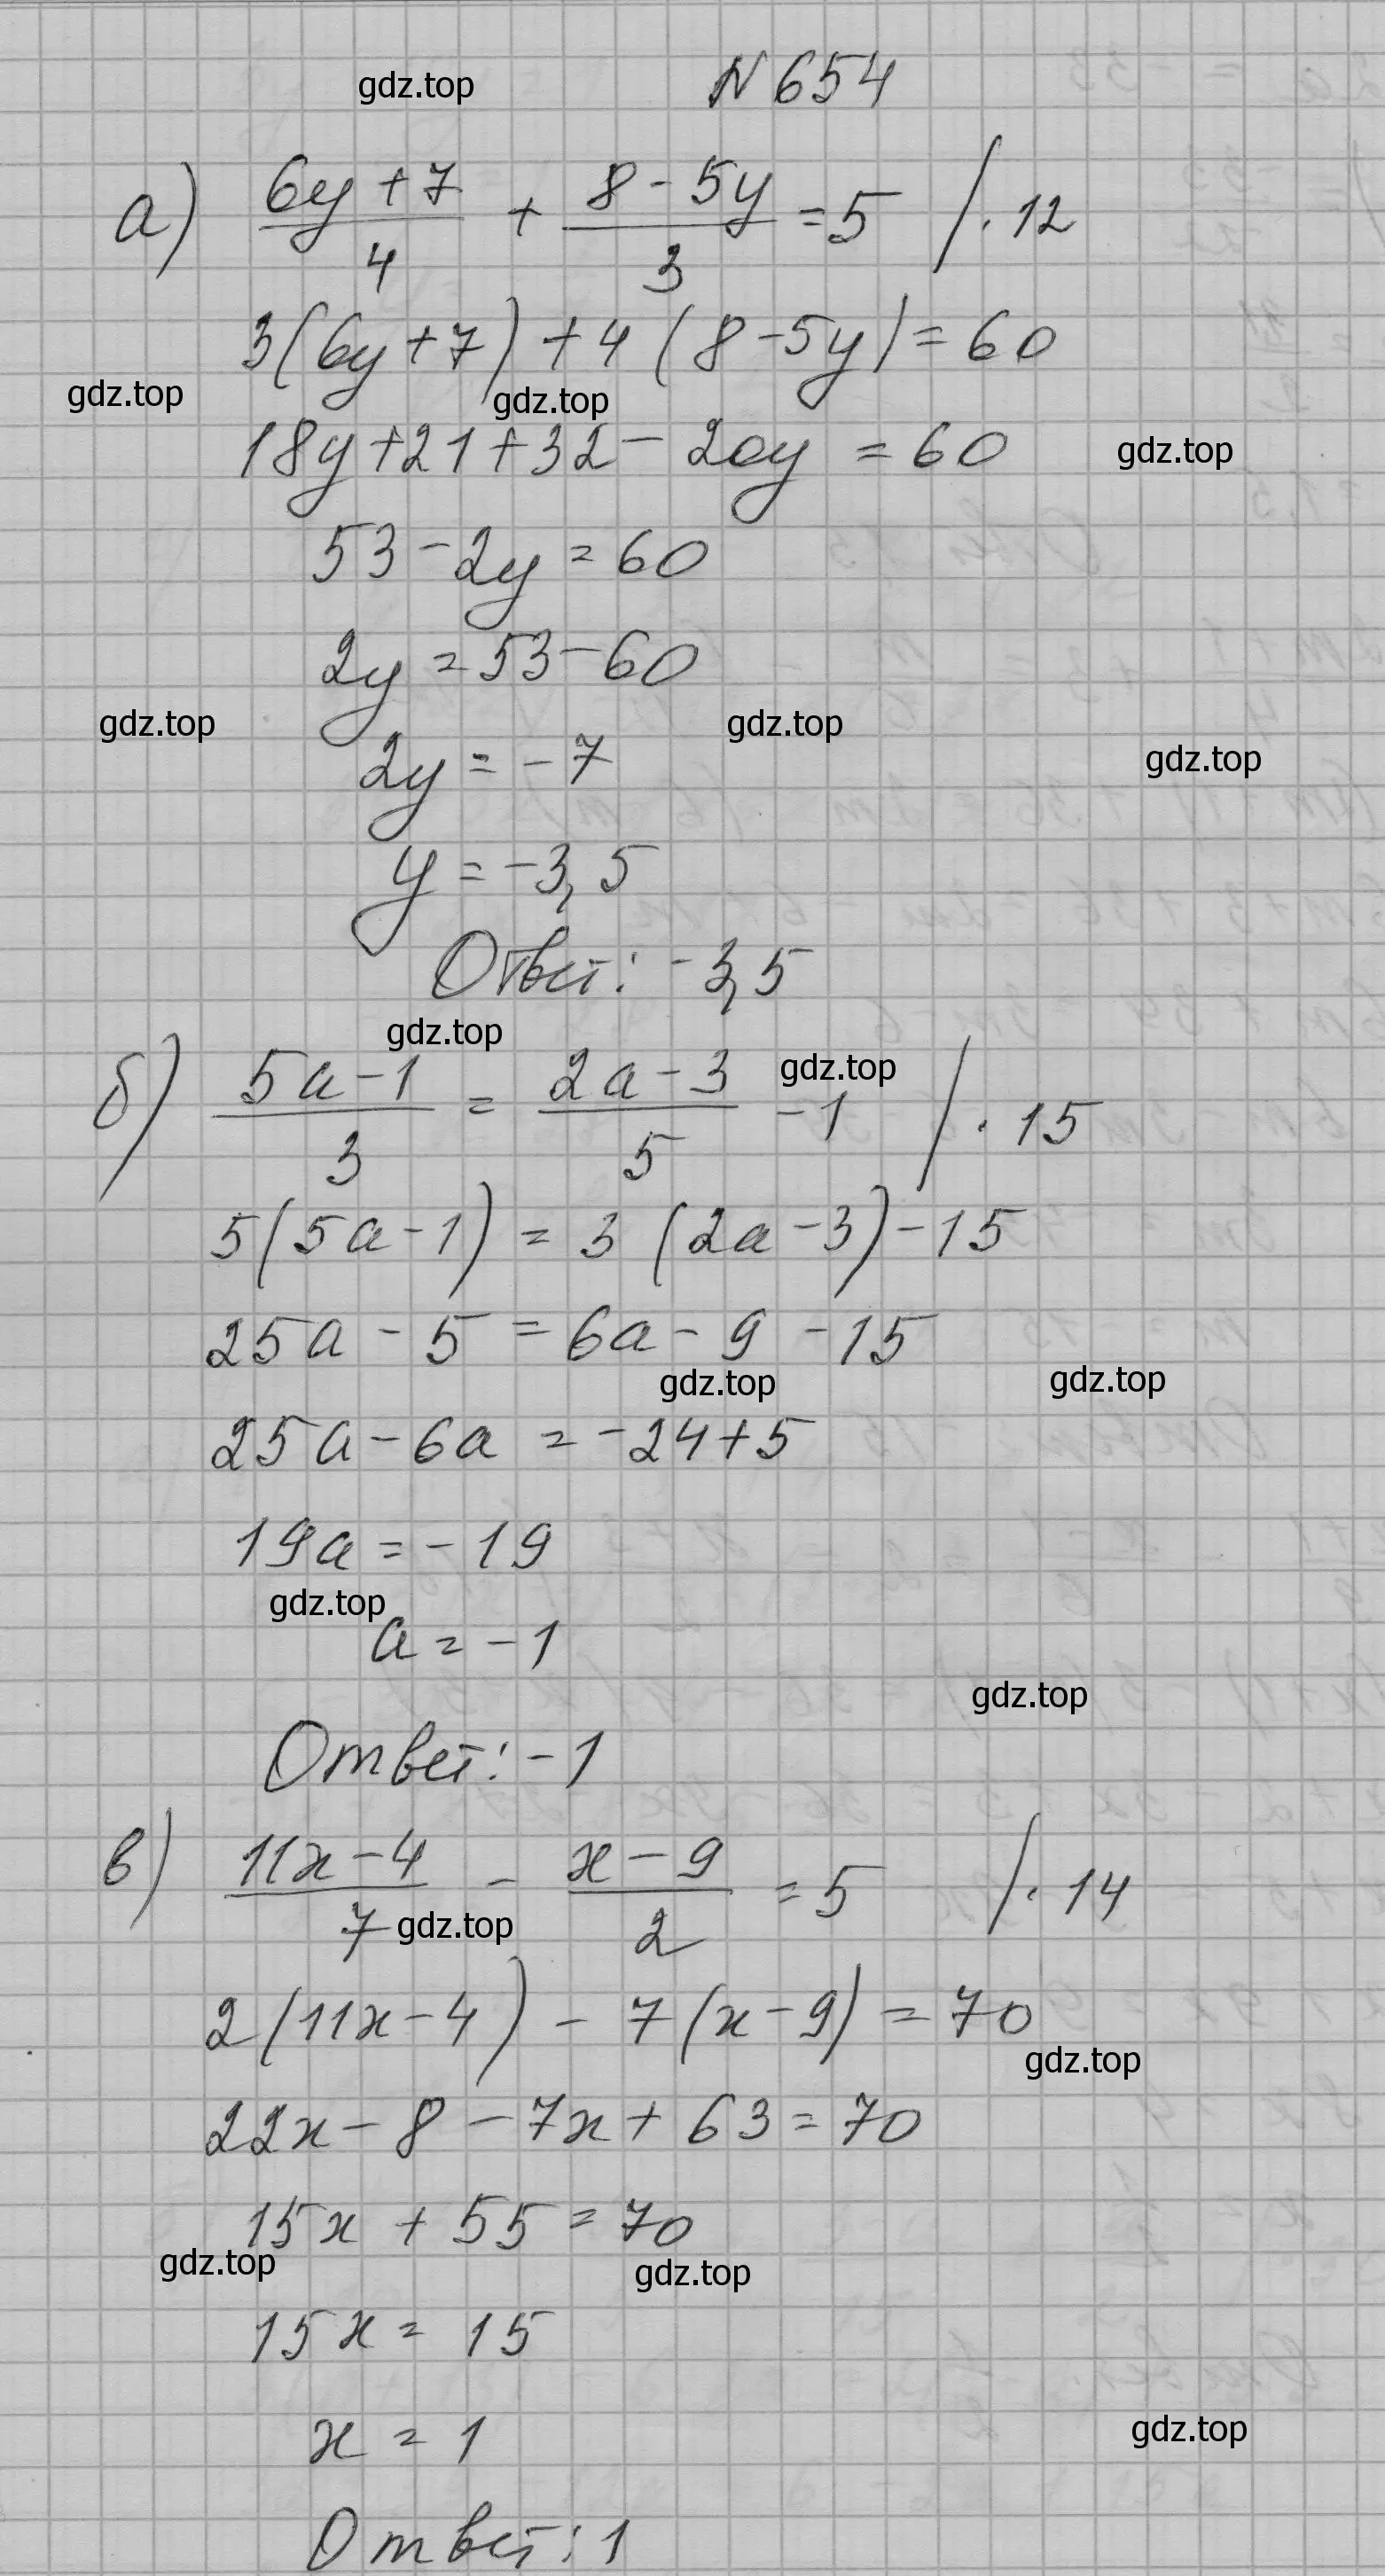 gdz.top N 654
а) (6y + 7)/4 + (8 - 5y)/3 = 5 /· 12
3(6y + 7) + 4(8 - 5y) = 60
gdz.top gdz.top
18y + 21 + 32 - 20y = 60 gdz.top
53 - 2y = 60
2y = 53 - 60
gdz.top gdz.top
2y = -7 gdz.top
y = -3,5
Ответ: -3,5
gdz.top
б) (5a - 1)/3 = (2a - 3)/5 - 1 /· 15 gdz.top
5(5a - 1) = 3(2a - 3) - 15
25a - 5 = 6a - 9 - 15
gdz.top gdz.top
25a - 6a = -24 + 5
19a = -19
gdz.top
a = -1
gdz.top
Ответ: -1
в) (11x - 4)/7 - (x - 9)/2 = 5 /· 14
gdz.top
2(11x - 4) - 7(x - 9) = 70
gdz.top
22x - 8 - 7x + 63 = 70
15x + 55 = 70
gdz.top gdz.top
15x = 15
x = 1 gdz.top
Ответ: 1